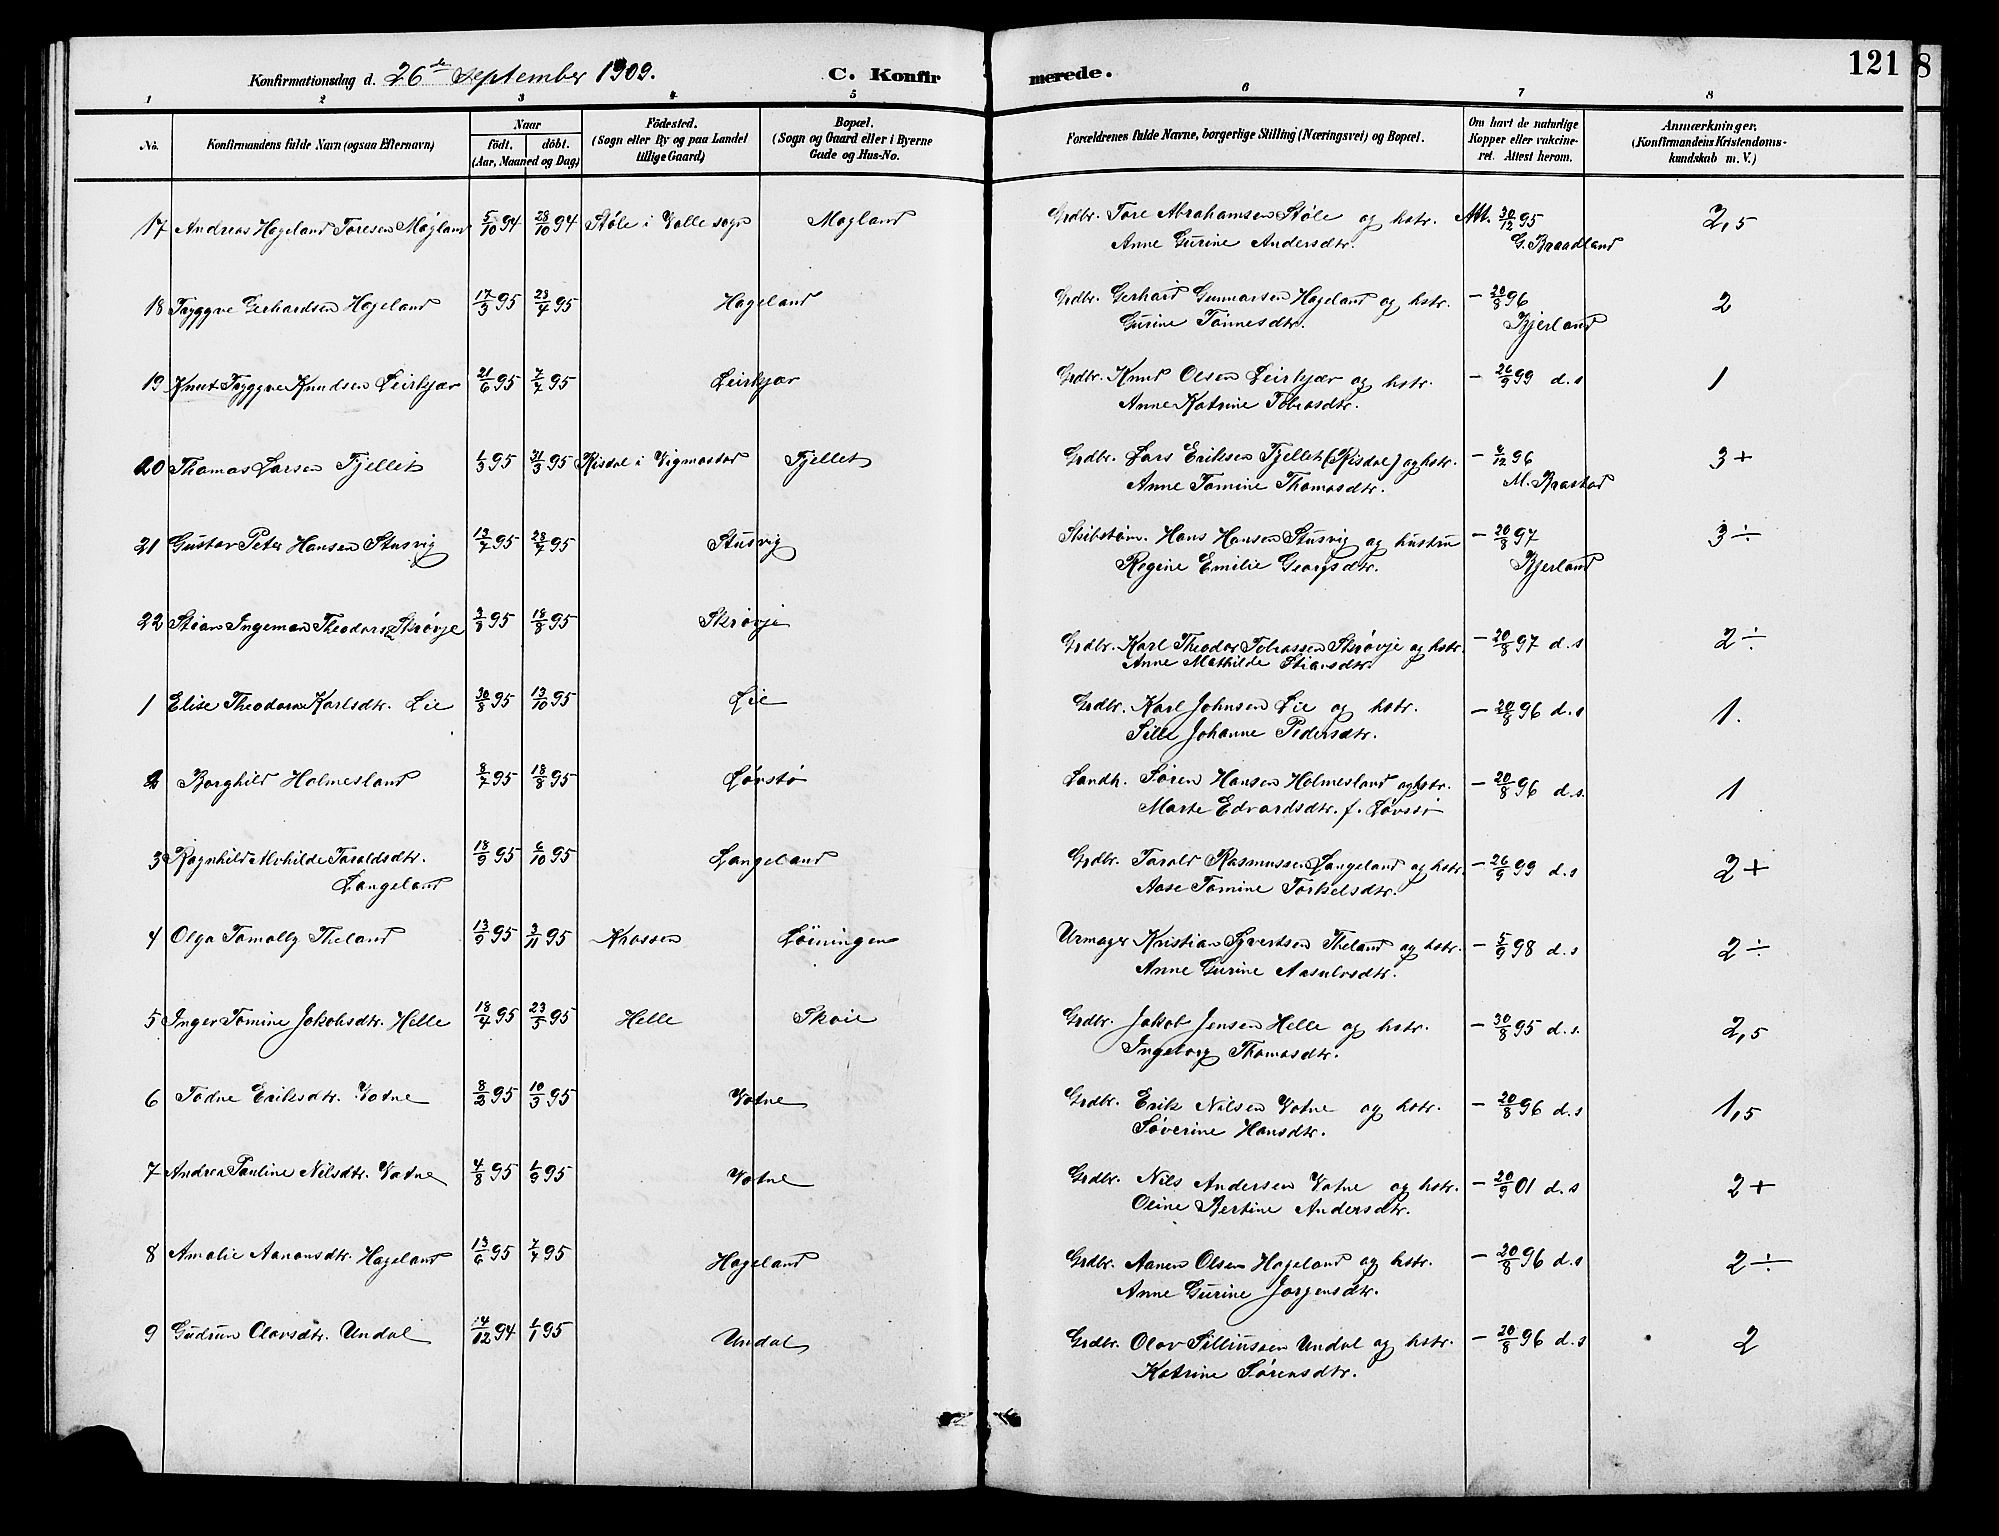 Konfirmationsdag d. 26de September 1909. C. Konfirmerede. 121
1 2 3 4 5 6 7 8
No. Konfirmandens fulde Navn (ogsaa Efternavn) Naar födt. döbt. (Aar, Maaned og Dag) Födested. (Sogn eller By og paa Landet tillige Gaard) Bopæl. (Sogn og Gaard eller i Byerne Gade og Hus-No. Forældrenes fulde Navne, borgerlige Stilling (Næringsvei) og Bopæl. Om havt de naturlige Kopper eller vakcineret. Attest herom. Anmærkninger. (Konfirmandens Kristendomskundskab m. V.)
17 Andreas Hageland Toresen Møgland 5/10 94 28/10 94 Støle i Valle sogn Møgland Grdbr. Tore Abrahamsen Støle og hstr. Att. 30/12 95 2,5
Anne Gurine Andersdtr. G. Braadland
18 Tryggve Gerhardsen Hageland 17/3 95 28/4 95 Hageland Grdbr. Gerhard Gunnarsen Hageland og hstr. – 20/8 96 2
Gurine Tønnesdtr. Bjerland
19 Knut Tryggve Knudsen Leirkjær 21/6 95 7/7 95 Leirkjær Grdbr. Knud Olsen Leirkjær og hstr. – 26/9 99 d.s 1
Anne Katrine Tobiasdtr.
20 Thomas Larsen Fjellet 1/3 95 31/3 95 Risdal i Vigmostad Fjellet Grdbr. Lars Eriksen Fjellet (Risdal) og hstr. – /12 96 3+
Anne Tomine Thomasdtr. M. Brastad
21 Gustav Peter Hansen Stusvig 13/7 95 28/7 95 Stusvig Skibstøm. Hans Hansen Stusvig og hustru – 20/8 97 3÷
Regine Emilie Georgsdtr. Bjerland
22 Stian Ingeman Theodors. Skrøvje 3/8 95 18/8 95 Skrøvje Grdbr. Karl Theodor Tobiassen Skrøvje og hstr. – 20/8 97 d.s 2÷
Anne Mathilde Stiansdtr.
1 Elise Theodora Karlsdtr. Lie 30/8 95 13/10 95 Lie Grdbr. Karl Johnsen Lie og hstr. – 20/8 96 d.s 1.
Sille Johanne Pedersdtr.
2 Borghild Holmesland 8/7 95 18/8 95 Løvstø Landh. Søren Hansen Holmesland og hstr. – 20/8 96 d.s. 1
Marte Edvardsdtr. f. Løvstø
3 Ragnhild Alvhilde Taraldsdtr. 18/9 95 6/10 95 Langeland Grdbr. Tarald Rasmussen Langeland og hstr. – 26/9 99 d.s 2+
Langeland Aase Tomine Torkelsdtr.
4 Olga Tomally Theland 13/9 95 3/11 95 Krossen Løiningen Urmager Kristian Syvertsen Theland og hstr. – 5/9 98 d.s 2÷
Anne Gurine Aasulvsdtr.
5 Inger Tomine Jakobsdtr. Helle 18/4 95 23/5 95 Helle Skoie Grdbr. Jakob Jensen Helle og hstr. – 30/8 95 d.s. 2,5
Ingeborg Thomasdtr.
6 Todne Eriksdtr. Vatne 8/2 95 10/3 95 Vatne Grdbr. Erik Nilsen Vatne og hstr. – 20/8 96 d.s 1,5
Søverine Hansdtr.
7 Andrea Pauline Nilsdtr. Vatne 4/8 95 1/9 95 Vatne Grdbr. Nils Andersen Vatne og hstr. – 20/9 01 d.s 2+
Oline Bertine Andersdtr.
8 Amalie Aanonsdtr. Hageland 13/6 95 7/7 95 Hageland Grdbr. Aanen Olsen Hageland og hstr. – 20/8 96 d.s 2÷
Anne Gurine Jørgensdtr.
9 Gudrun Olavsdtr. Undal 14/12 94 1/1 95 Undal Grdbr. Olav Silliussen Undal og hstr. – 20/8 96 d.s 2
Katrine Sørensdtr.